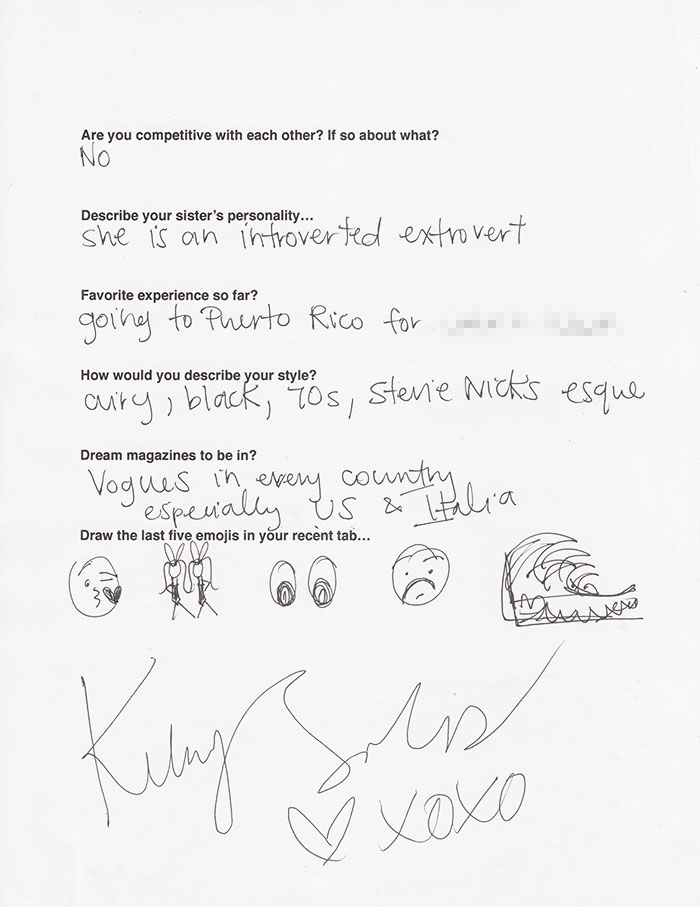 Are you competitive with each other? If so about what?
No
Describe your sister's personality...
she is an introverted extrovert
Favorite experience so far?
going to Puerto Rico for
How would you describe your style?
airy, black, 70s, Stevie Nicks esque
Dream magazines to be in?
Vogues in every country
especially US & Italia
Draw the last five emojis in your recent tab...
XOXO